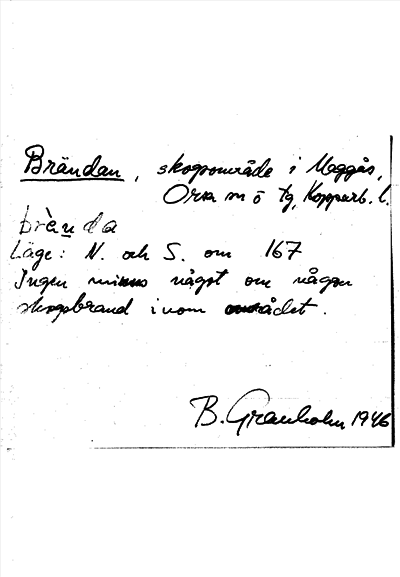 Brändan, skogsområde i Maggås,
Orsa m o tg, Kopparb. l.
brènda
Läge: N. och S. om 167
Ingen minns något om någon
skogsbrand inom området.
B. Granholm 1946